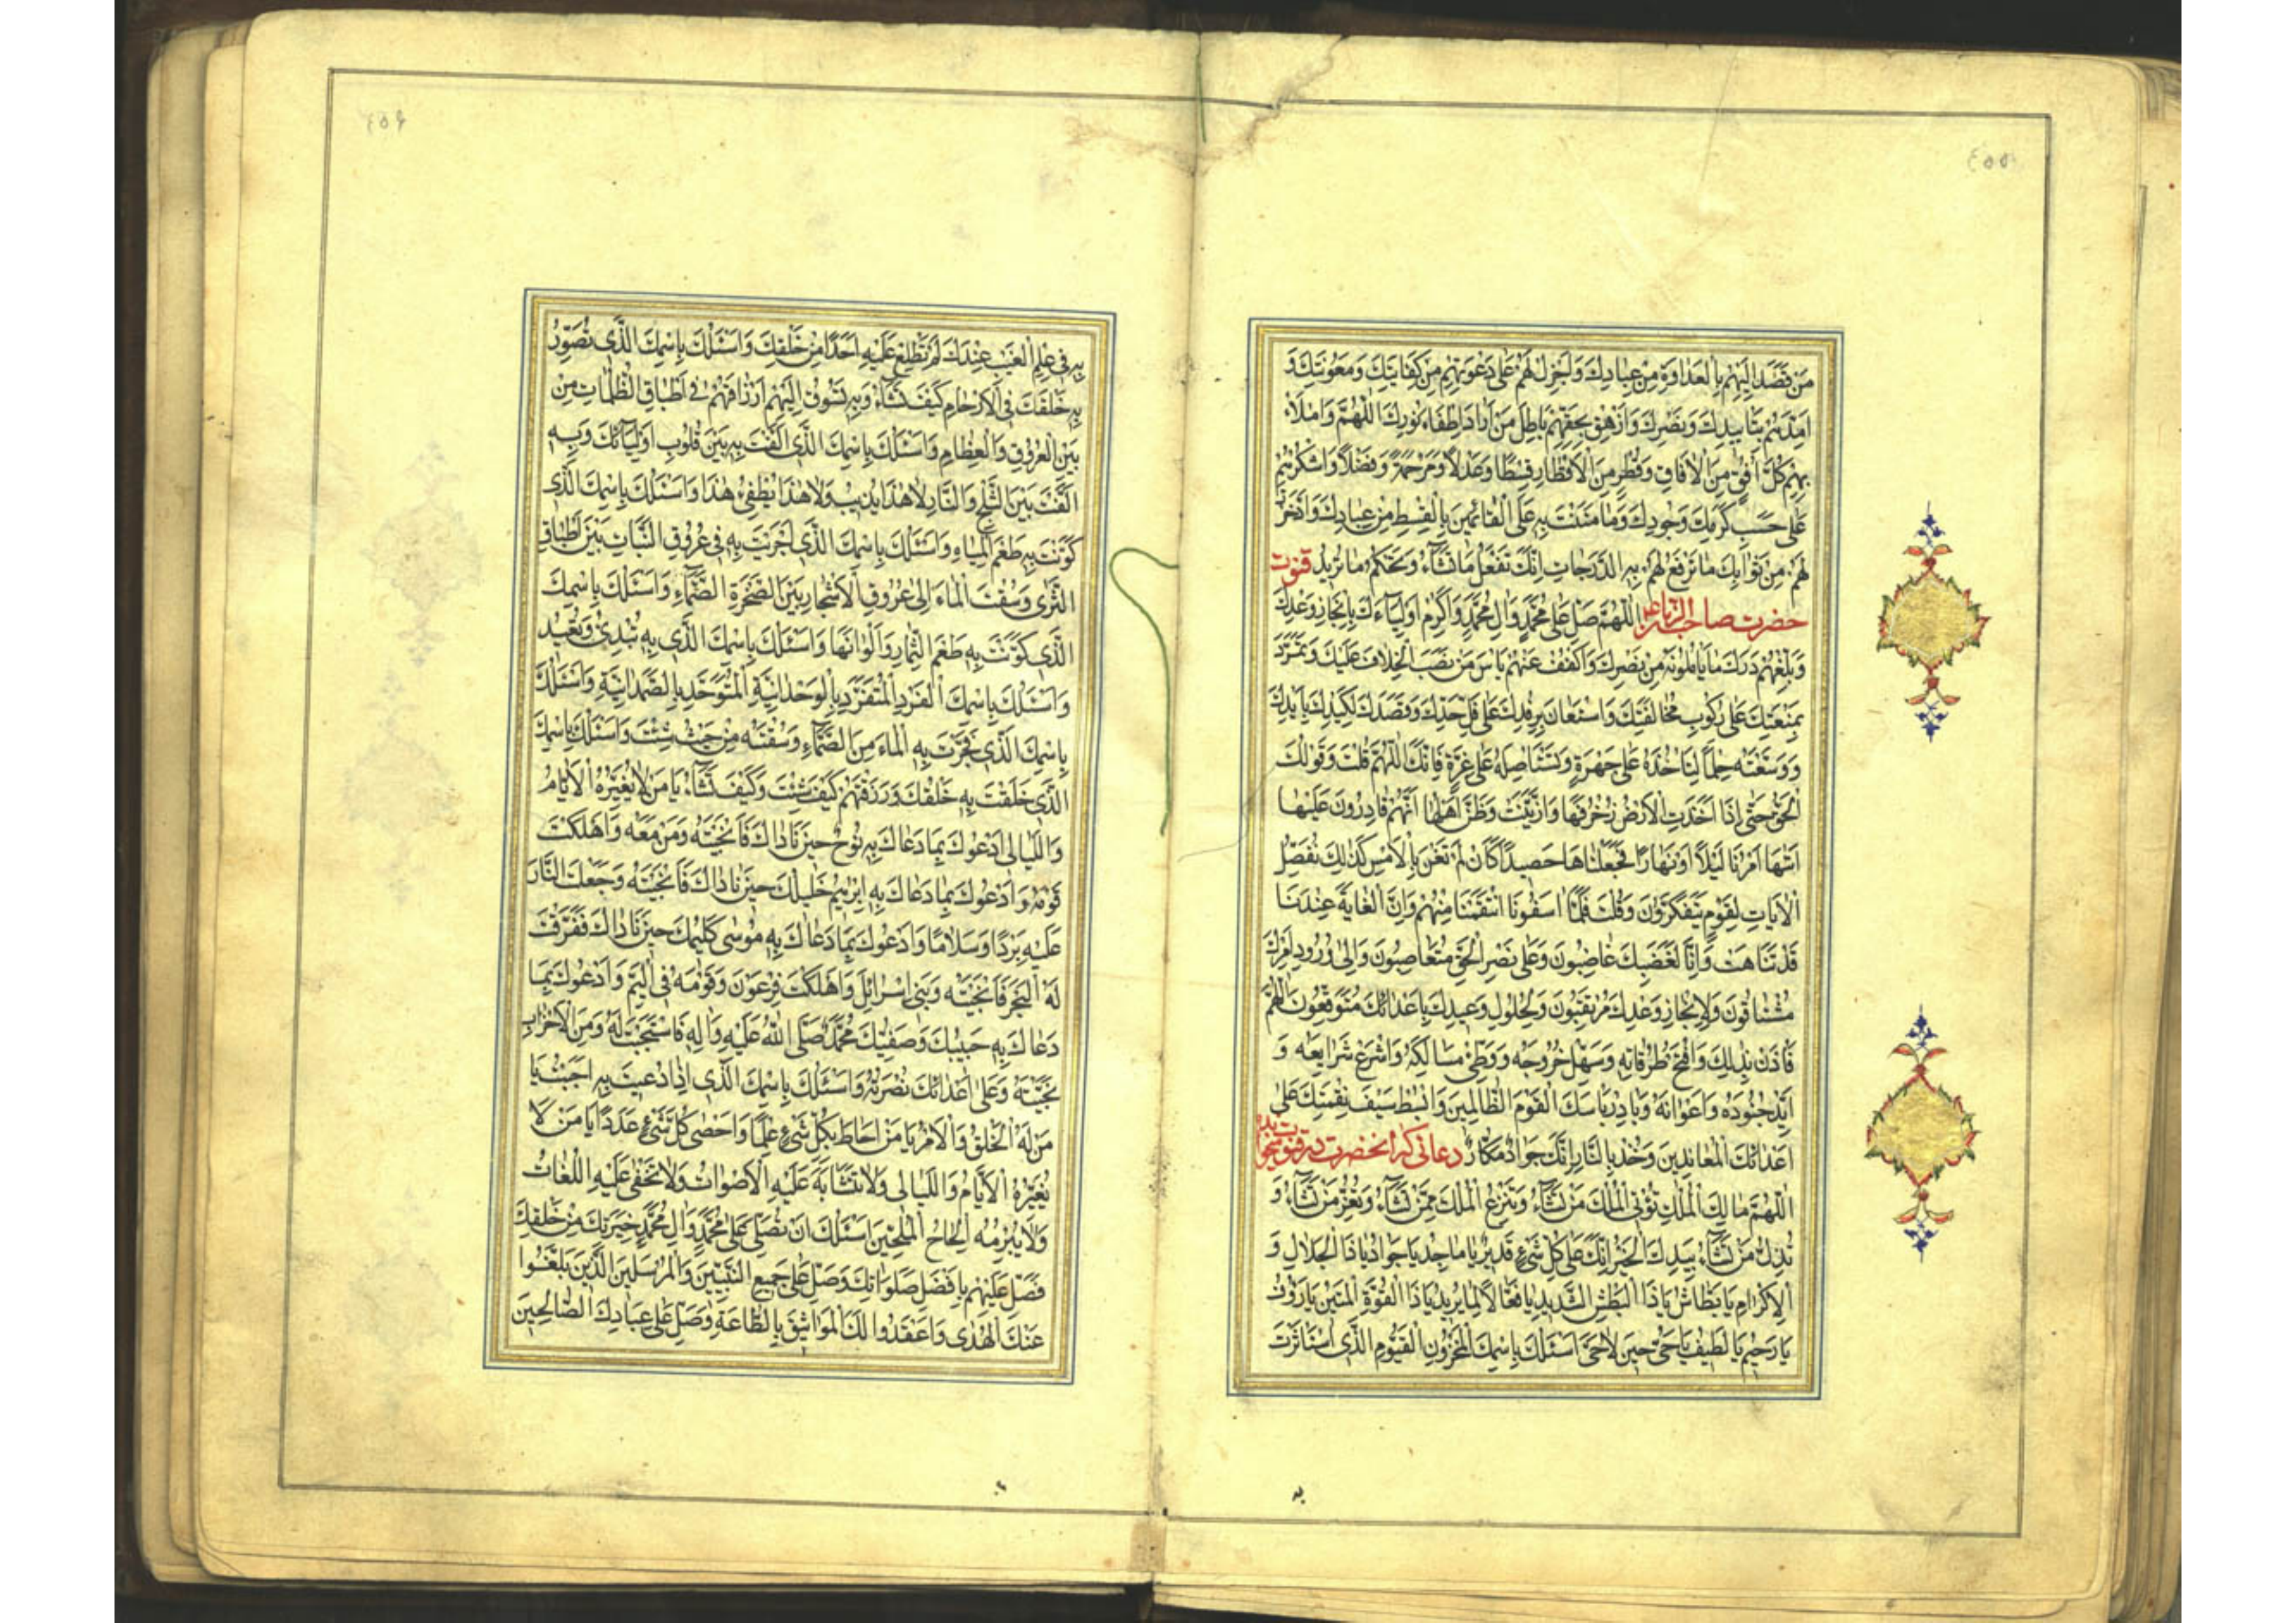 ٤٥٥
مَنْ قَصَدَ اِلَيْهِمْ بِالْعَدَاوَةِ مِنْ عِبَادِكَ وَاَجْزِلْ لَهُمْ عَلٰى دَعْوَتِهِمْ مِنْ كِفَايَتِكَ وَمَعُونَتِكَ وَ
اَمْدِدْهُمْ بِتَأْيِيدِكَ وَنَصْرِكَ وَاَزْهِقْ بِحَقِّهِمْ بَاطِلَ مَنْ اَرَادَ اِطْفَاءَ نُورِكَ اَللّٰهُمَّ وَامْلَاْ
بِهِمْ كُلَّ اُفُقٍ مِنَ الْاٰفَاقِ وَقُطْرٍ مِنَ الْاَقْطَارِ قِسْطًا وَعَدْلًا وَمَرْحَمَةً وَفَضْلًا وَاشْكُرْهُمْ
عَلٰى حَسَبِ كَرَمِكَ وَجُودِكَ وَمَا مَنَنْتَ بِهِ عَلَى الْقَائِمِينَ بِالْقِسْطِ مِنْ عِبَادِكَ وَادَّخَرْتَ
لَهُمْ مِنْ ثَوَابِكَ مَا تَرْفَعُ لَهُمْ بِهِ الدَّرَجَاتِ اِنَّكَ تَفْعَلُ مَا تَشَاءُ وَتَحْكُمُ مَا تُرِيدُ قنوت
حضرت صاحب الزمان ع اَللّٰهُمَّ صَلِّ عَلٰى مُحَمَّدٍ وَاٰلِ مُحَمَّدٍ وَاَكْرِمْ اَوْلِيَاءَكَ بِاِنْجَازِ وَعْدِكَ
وَبَلِّغْهُمْ دَرَكَ مَا يَأْمُلُونَهُ مِنْ نَصْرِكَ وَاكْفُفْ عَنْهُمْ بَأْسَ مَنْ نَصَبَ الْخِلَافَ عَلَيْكَ وَتَمَرَّدَ
بِمَنْعِتِكَ عَلٰى رُكُوبِ مُخَالَفَتِكَ وَاسْتَعَانَ بِرِفْدِكَ عَلٰى فَلِّ حَدِّكَ وَقَصَدَكَ لِكَيْدِكَ بِاَيْدِكَ
وَوَسِعْتَهُ حِلْمًا لِتَأْخُذَهُ عَلٰى جَهْرَةٍ وَتَسْتَأْصِلَهُ عَلٰى غِرَّةٍ فَاِنَّكَ اللّٰهُمَّ قُلْتَ وَقَوْلُكَ
الْحَقُّ حَتّٰى اِذَا اَخَذَتِ الْاَرْضُ زُخْرُفَهَا وَازَّيَّنَتْ وَظَنَّ اَهْلُهَا اَنَّهُمْ قَادِرُونَ عَلَيْهَا
اَتٰهَا اَمْرُنَا لَيْلًا اَوْ نَهَارًا فَجَعَلْنَاهَا حَصِيدًا كَاَنْ لَمْ تَغْنَ بِالْاَمْسِ كَذٰلِكَ نُفَصِّلُ
الْاٰيَاتِ لِقَوْمٍ يَتَفَكَّرُونَ وَقُلْتَ فَلَمَّا اٰسَفُونَا انْتَقَمْنَا مِنْهُمْ وَاِنَّ الْغَايَةَ عِنْدَنَا
قَدْ تَنَاهَتْ وَاِنَّا لِغَضَبِكَ غَاضِبُونَ وَعَلٰى نَصْرِ الْحَقِّ مُتَعَاصِبُونَ وَاِلٰى وُرُودِ اَمْرِكَ
مُشْتَاقُونَ وَلِاِنْجَازِ وَعْدِكَ مُرْتَقِبُونَ وَلِحُلُولِ وَعِيدِكَ بِاَعْدَائِكَ مُتَوَقِّعُونَ اَللّٰهُمَّ
فَاْذَنْ بِذٰلِكَ وَافْتَحْ طُرُقَاتِهِ وَسَهِّلْ خُرُوجَهُ وَوَطِّئْ مَسَالِكَهُ وَاشْرَعْ شَرَايِعَهُ وَ
اَيِّدْ جُنُودَهُ وَاَعْوَانَهُ وَبَادِرْ بَأْسَكَ الْقَوْمَ الظَّالِمِينَ وَابْسُطْ سَيْفَ نَقِمَتِكَ عَلٰى
اَعْدَائِكَ الْمُعَانِدِينَ وَخُذْ بِالثَّارِ اِنَّكَ جَوَادٌ مَكَّارٌ دعائی که انحضرت در قنوت میخوا
اَللّٰهُمَّ مَالِكَ الْمُلْكِ تُؤْتِي الْمُلْكَ مَنْ تَشَاءُ وَتَنْزِعُ الْمُلْكَ مِمَّنْ تَشَاءُ وَتُعِزُّ مَنْ تَشَاءُ وَ
تُذِلُّ مَنْ تَشَاءُ بِيَدِكَ الْخَيْرُ اِنَّكَ عَلٰى كُلِّ شَيْءٍ قَدِيرٌ يَا مَاجِدُ يَا جَوَادُ يَا ذَا الْجَلَالِ وَ
الْاِكْرَامِ يَا بَطَّاشُ يَا ذَا الْبَطْشِ الشَّدِيدِ يَا فَعَّالًا لِمَا يُرِيدُ يَا ذَا الْقُوَّةِ الْمَتِينَ يَا رَؤُفُ
يَا رَحِيمُ يَا لَطِيفُ يَا حَيُّ حِينَ لَا حَيَّ اَسْئَلُكَ بِاسْمِكَ الْمَخْزُونِ الْقَيُّومِ الَّذِي اسْتَأْثَرْتَ
به
٤٥٦
بِهِ فِي عِلْمِ الْغَيْبِ عِنْدَكَ لَمْ تُطْلِعْ عَلَيْهِ اَحَدًا مِنْ خَلْقِكَ وَاَسْئَلُكَ بِاسْمِكَ الَّذِي تُصَوِّرُ
بِهِ خَلْقَكَ فِي الْاَرْحَامِ كَيْفَ تَشَاءُ وَبِهِ تَسُوقُ اِلَيْهِمْ اَرْزَاقَهُمْ فِي اَطْبَاقِ الظُّلُمَاتِ مِنْ
بَيْنِ الْعُرُوقِ وَالْعِظَامِ وَاَسْئَلُكَ بِاسْمِكَ الَّذِي اَلَّفْتَ بِهِ بَيْنَ قُلُوبِ اَوْلِيَائِكَ وَبِهِ
اَلَّفْتَ بَيْنَ الثَّلْجِ وَالنَّارِ لَا هٰذَا يُذِيبُ وَلَا هٰذَا يُطْفِئُ هٰذَا وَاَسْئَلُكَ بِاسْمِكَ الَّذِي
كَوَّنْتَ بِهِ طَعْمَ الْمِيَاهِ وَاَسْئَلُكَ بِاسْمِكَ الَّذِي اَجْرَيْتَ بِهِ فِي عُرُوقِ النَّبَاتِ بَيْنَ اَطْبَاقِ
الثَّرٰى وَسُقْتَ الْمَاءَ اِلٰى عُرُوقِ الْاَشْجَارِ بَيْنَ الصَّخْرَةِ الصَّمَّاءِ وَاَسْئَلُكَ بِاسْمِكَ
الَّذِي كَوَّنْتَ بِهِ طَعْمَ الثِّمَارِ وَاَلْوَانَهَا وَاَسْئَلُكَ بِاسْمِكَ الَّذِي بِهِ تُبْدِئُ وَتُعِيدُ
وَاَسْئَلُكَ بِاسْمِكَ الْفَرْدِ الْمُتَفَرِّدِ بِالْوَحْدَانِيَّةِ الْمُتَوَحِّدِ بِالصَّمَدَانِيَّةِ وَاَسْئَلُكَ
بِاسْمِكَ الَّذِي فَجَّرْتَ بِهِ الْمَاءَ مِنَ الصَّمَّاءِ وَسُقْتَهُ مِنْ حَيْثُ شِئْتَ وَاَسْئَلُكَ بِاسْمِكَ
الَّذِي خَلَقْتَ بِهِ خَلْقَكَ وَرَزَقْتَهُمْ كَيْفَ شِئْتَ وَكَيْفَ تَشَاءُ يَا مَنْ لَا يُغَيِّرُهُ الْاَيَّامُ
وَاللَّيَالِي اَدْعُوكَ بِمَا دَعَاكَ بِهِ نُوحٌ حِينَ نَادَاكَ فَاَنْجَيْتَهُ وَمَنْ مَعَهُ وَاَهْلَكْتَ
قَوْمَهُ وَاَدْعُوكَ بِمَا دَعَاكَ بِهِ اِبْرٰهِيمُ خَلِيلُكَ حِينَ نَادَاكَ فَاَنْجَيْتَهُ وَجَعَلْتَ النَّارَ
عَلَيْهِ بَرْدًا وَسَلَامًا وَاَدْعُوكَ بِمَا دَعَاكَ بِهِ مُوسٰى كَلِيمُكَ حِينَ نَادَاكَ فَفَرَقْتَ
لَهُ الْبَحْرَ فَاَنْجَيْتَهُ وَبَنِي اِسْرَائِلَ وَاَهْلَكْتَ فِرْعَوْنَ وَقَوْمَهُ فِي الْيَمِّ وَاَدْعُوكَ بِمَا
دَعَاكَ بِهِ حَبِيبُكَ وَصَفِيُّكَ مُحَمَّدٌ صَلَّى اللّٰهُ عَلَيْهِ وَاٰلِهِ فَاسْتَجَبْتَ لَهُ وَمِنَ الْاَحْزَابِ
نَجَّيْتَهُ وَعَلٰى اَعْدَائِكَ نَصَرْتَهُ وَاَسْئَلُكَ بِاسْمِكَ الَّذِي اِذَا دُعِيتَ بِهِ اَجَبْتَ يَا
مَنْ لَهُ الْخَلْقُ وَالْاَمْرُ يَا مَنْ اَحَاطَ بِكُلِّ شَيْءٍ عِلْمًا وَاَحْصٰى كُلَّ شَيْءٍ عَدَدًا يَا مَنْ لَا
يُغَيِّرُهُ الْاَيَّامُ وَاللَّيَالِي وَلَا تَتَشَابَهُ عَلَيْهِ الْاَصْوَاتُ وَلَا تَخْفٰى عَلَيْهِ اللُّغَاتُ
وَلَا يُبْرِمُهُ اِلْحَاحُ الْمُلِحِّينَ اَسْئَلُكَ اَنْ تُصَلِّيَ عَلٰى مُحَمَّدٍ وَاٰلِ مُحَمَّدٍ خِيَرَتِكَ مِنْ خَلْقِكَ
فَصَلِّ عَلَيْهِمْ بِاَفْضَلِ صَلَوَاتِكَ وَصَلِّ عَلٰى جَمِيعِ النَّبِيِّينَ وَالْمُرْسَلِينَ الَّذِينَ بَلَّغُوا
عَنْكَ الْهُدٰى وَاَعْقَدُوا لَكَ الْمَوَاثِيقَ بِالطَّاعَةِ وَصَلِّ عَلٰى عِبَادِكَ الصَّالِحِينَ